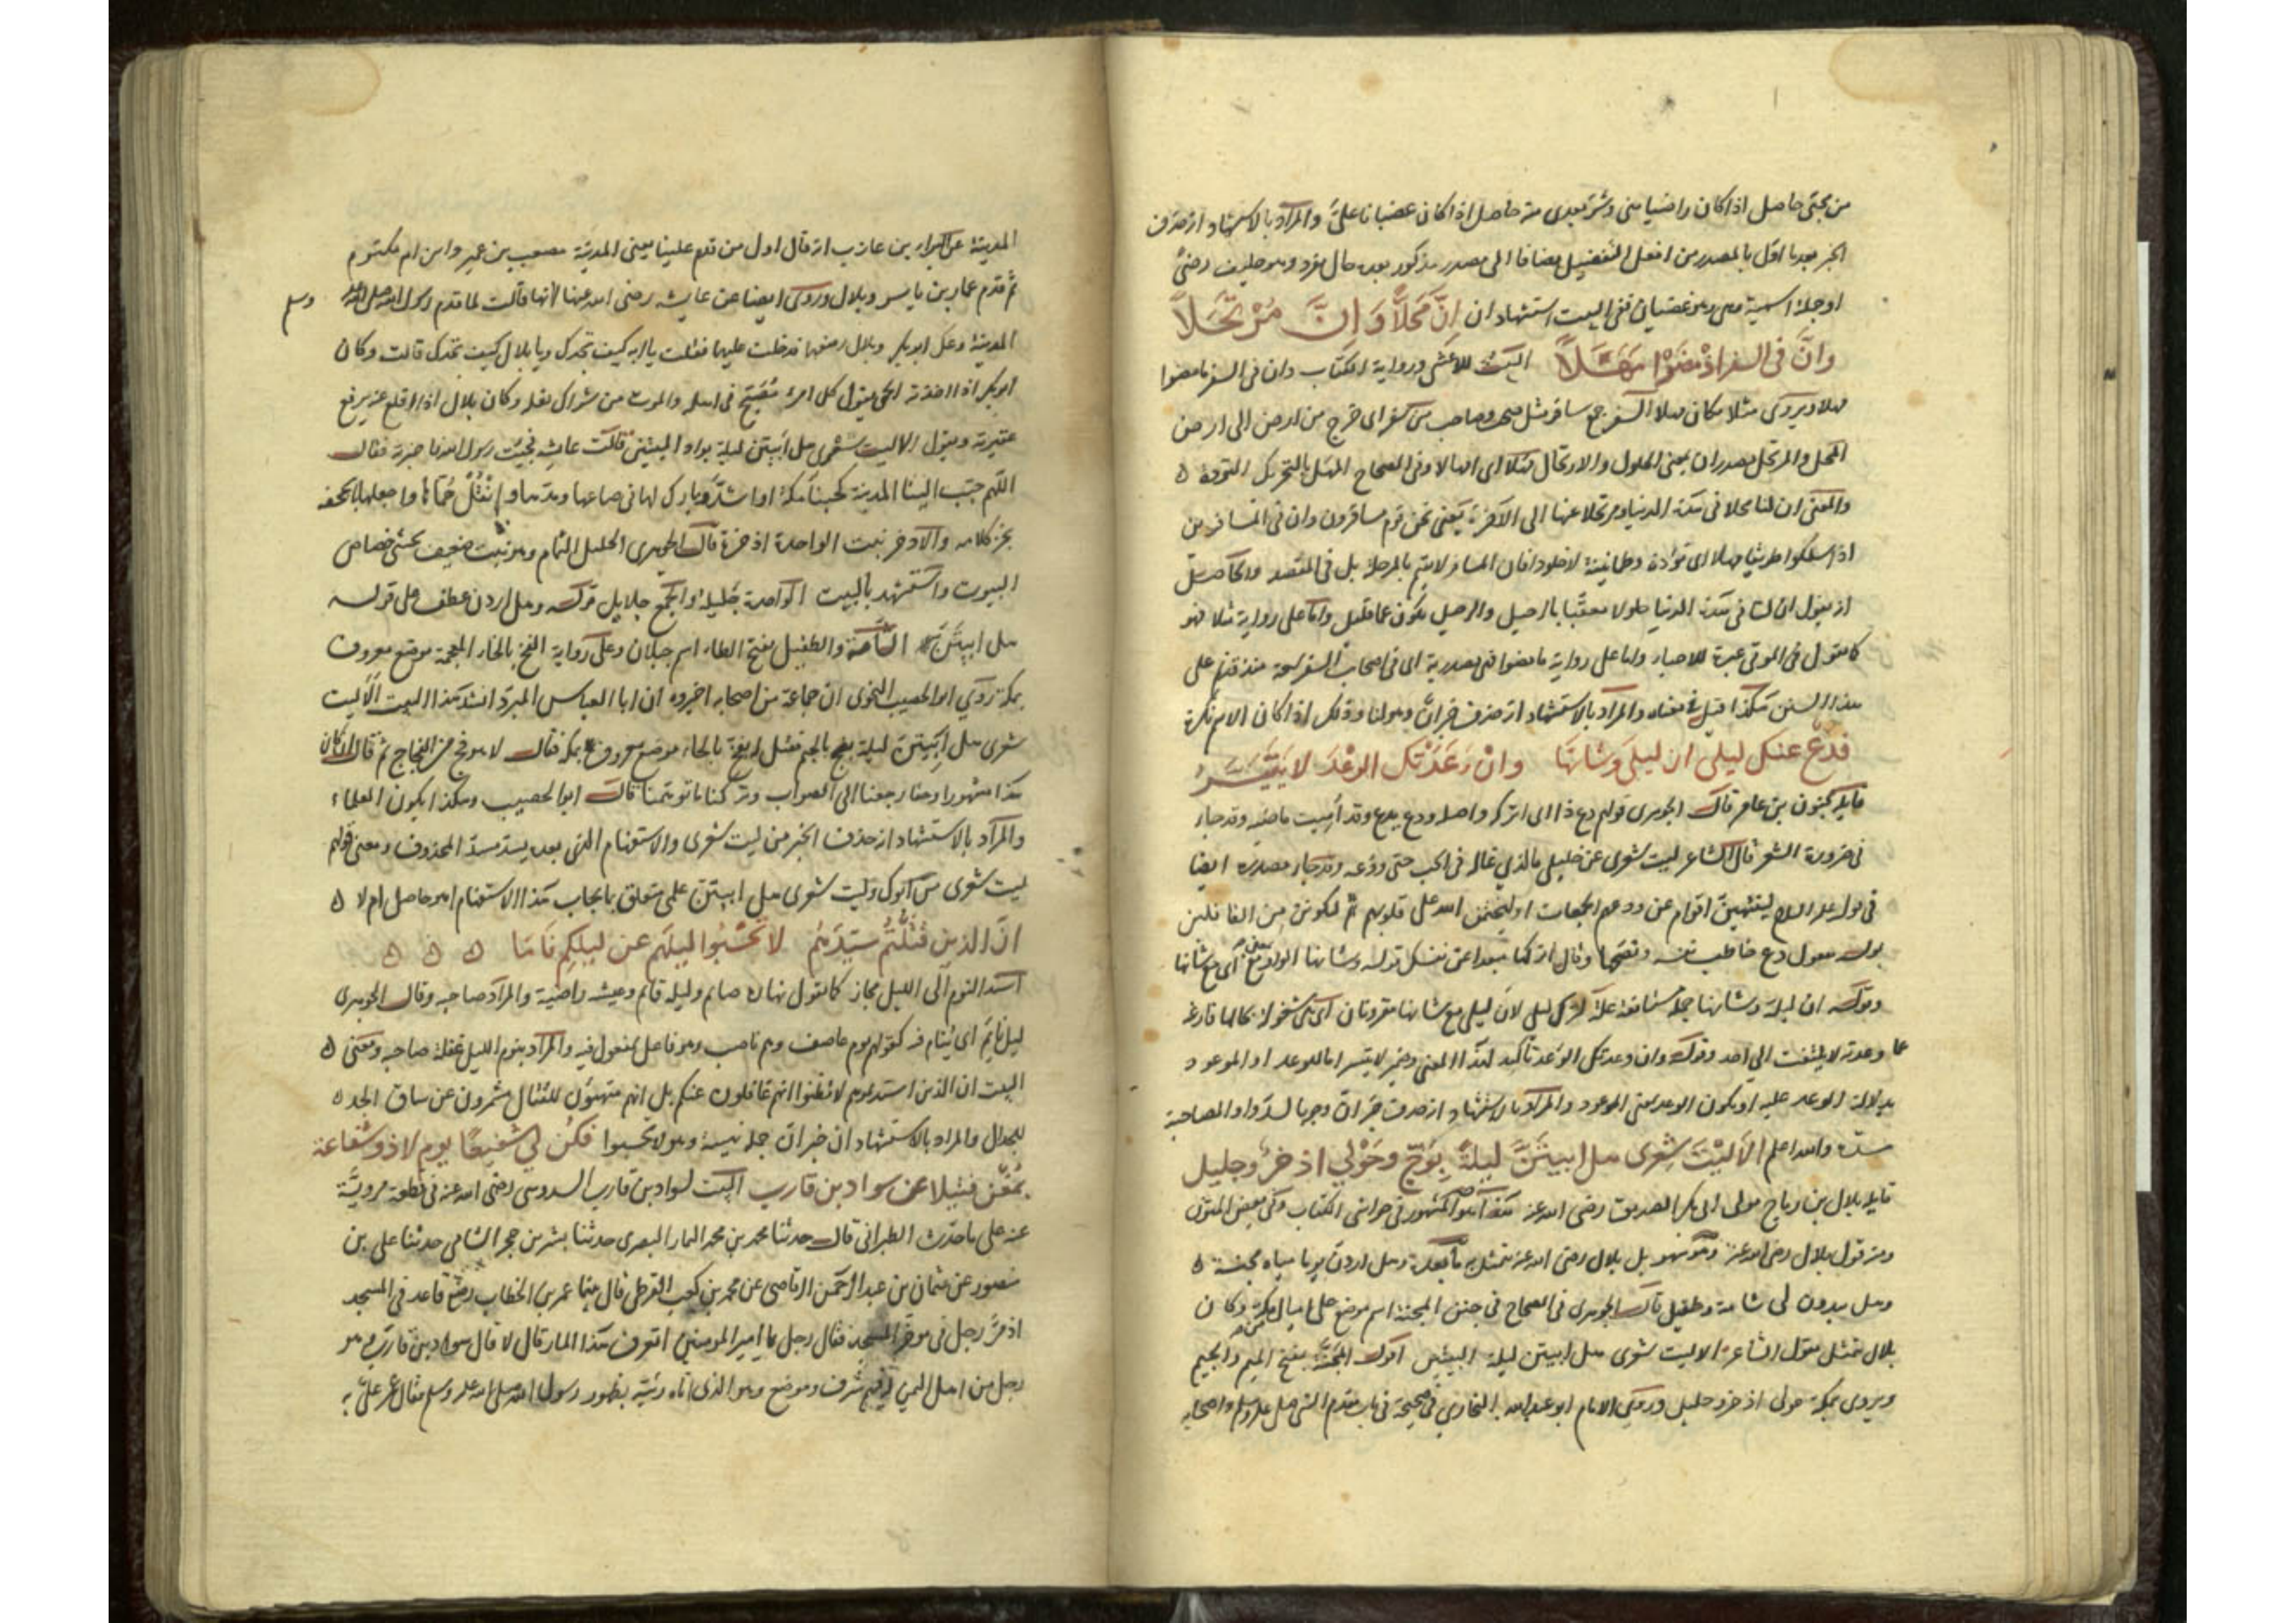 من بحثى حاصل اذا كان راضيا منى وشر بعدى منه حاصل اذا كان غضبانا على والمراد بالاستشهاد انه حذف
الخبر بعد ما اول بالمصدر من افعل التفضيل مضافا الى مصدر مذكور بعده حال مفرد وهو حليف رضى
او جملة اسمية وهى وهو غضبان ففى البيت استشهاد ان اِنَّ مَحَلاًّ وَاِنَّ مُرْتَحَلاً
وانَّ فى السفر اذْ مضَوْا مَهَلاً البيت للاعشى ورواية الكتاب وان فى السفر ما مضوا
مهلا ويروى مثلا مكان مهلا السفر جمع سافر مثل صحب وصاحب من سفر اى خرج من ارض الى ارض
المحل والمرتحل مصدران بمعنى الحلول والارتحال مهلا اى امهالا وفى الصحاح المهل بالتحريك التؤدة ه
والمعنى ان لنا محلا فى هذه الدنيا ومرتحلا عنها الى الآخرة يعنى نحن قوم مسافرون وان فى المسافرين
اذا سلكوا طريقا مهلا اى تؤادة وطمانينة لا خلودا فان المسافر لا يتم بالمرحلة بل فى المقصد والحاصل
انه يقول ان لنا فى هذه الدنيا حلولا معقبا بالرحيل والرحيل يكون عما قليل واما على رواية مثلا فهو
كما تقول فى الموتى عبرة للاحياء واما على رواية ما مضوا فما مصدرية اى فى اصحاب السفر
هذا السنن هكذا قيل فى معناه والمراد بالاستشهاد انه حذف خبر ان وهو لنا وذلك اذا كان الاسم نكرة
فدع عنك ليلى ان ليلى وشانها وانْ وَعَدَتْكَ الوَعْدَ لا يَتَيَسَّرُ
قايله مجنون بن عامر قال الجوهرى قولهم دع ذا اى اتركه واصله ودع يدع وقد اميت ماضيه وقد جاء
فى ضرورة الشعر قال الشاعر ليت شعرى عن خليلى ما الذي غاله فى الحب حتى ودعه وقد جاء مصدره ايضا
فى قوله عليه السلام لينتهين اقوام عن ودعهم الجمعات او ليختمن الله على قلوبهم ثم ليكونن من الغافلين
يقول دع خاطب نفسه ونصحها وقال اتركها مبعدا عن نفسك قوله وشانها الواو بمعنى مع اى مع شانها
وقوله ان ليلى وشانها جملة مستانفة علة لترك ليلى لان ليلى مع شانها مقرونان اى هى مشغولة بحالها فارغة
عما وعدته لا يلتفت الى احد وقوله وان وعدتك الوعد تاكيد لهذا المعنى وضمير لا يتيسر اما للوعد او الموعود
بدلالة الوعد عليه او يكون الوعد بمعنى الموعود والمراد بالاستشهاد انه حذف خبر ان وجوبا لسد واو المصاحبة
مسده والله اعلم الاَ لَيْتَ شِعْرى هل ابيتَنَّ ليلةً بِوَجّ وحَوْلي اذخرٌ وجليل
قايله بلال بن رباح مولى ابى بكر الصديق رضى الله عنه هذا هو المشهور فى حواشى الكتاب وفى بعض المتون
ومنه قول بلال رضى الله عنه وهو سهو بل بلال رضى الله عنه تمثل به ما بعده وهل اردن يوما مياه مجنة ه
وهل يبدون لى شامة وطفيل قال الجوهرى فى الصحاح فى جنن المجنة اسم موضع على اميال من مكة وكان
بلال يتمثل بقول الشاعر الا ليت شعرى هل ابيتن ليلة البيتين قوله المجنة بفتح الميم والجيم
ويروى بمكة حولى اذخر وجليل وروى الامام ابو عبد الله البخارى فى صحيحه فى باب مقدم النبى صلى الله عليه وسلم واصحابه
المدينة عن البراء بن عازب انه قال اول من قدم علينا يعنى المدينة مصعب بن عمير وابن ام مكتوم
ثم قدم عمار بن ياسر وبلال وروى ايضا عن عايشة رضى الله عنها انها قالت لما قدم رسول الله صلى الله عليه وسلم
المدينة وعك ابو بكر وبلال رضى الله عنهما فدخلت عليهما فقلت يا ابه كيف تجدك ويا بلال كيف تجدك قالت وكان
ابو بكر اذا اخذته الحمى يقول كل امرئ مُصَبَّح فى اهله والموت من شراك نعله وكان بلال اذا اقلع عنه يرفع
عقيرته ويقول الا ليت شعرى هل ابيتن ليلة بواد البيتين قالت عايشة فجئت رسول الله فاخبرته فقال
اللهم حبب الينا المدينة كحبنا مكة او اشد وبارك لها فى صاعها ومدها وانْقُلْ حُمَّاها واجعلها بالجحفة
تم كلامه والاذخر نبت الواحدة اذخرة قال الجوهرى الجليل الثمام وهو نبت ضعيف يحشى خصاص
البيوت واستشهد بالبيت الواحدة جليلة والجمع جلايل قوله وهل اردن عطف على قوله
هل ابيتَنَّ الشامة والطفيل بفتح الطاء اسم جبلان وعلى رواية الفخ بالخاء المعجمة موضع معروف
بمكة روى ابو الحصيب النحوى ان جماعة من اصحابه اخبروه ان ابا العباس المبرد انشد هذا البيت الا ليت
شعرى هل ابيتن ليلة بفج بالجيم فقيل له بفخ بالخاء موضع معروف بمكة فقال لا هو فج من الفجاج ثم قال ان كان
هذا مشهورا وحقا رجعنا الى الصواب وتركنا ما توهمنا قال ابو الحصيب وهكذا يكون العلماء
والمراد بالاستشهاد انه حذف الخبر من ليت شعرى والاستفهام الذى بعده يسد مسد المحذوف ومعنى قولهم
ليت شعرى من ابوك وليت شعرى هل ابيتن علمى متعلق بما يجاب هذا الاستفهام اهو حاصل ام لا ه
انَّ الذين قَتَلْتُمْ سيّدَهُم لا تَحْسَبُوا ليلَهم عن ليلِكم نَامَا ه ه ه
اسند النوم الى الليل مجاز كما تقول نهاره صايم وليله قايم وعيشة راضية والمراد صاحبه وقال الجوهرى
ليل نايم اى ينام فيه كقولهم يوم عاصف وهم ناصب وهو فاعل بمعنى مفعول فيه والمراد بنوم الليل غفلة صاحبه ومعنى ه
البيت ان الذين استدعوهم لا تظنوا انهم غافلون عنكم بل انهم متهيئون للقتال مشمرون عن ساق الجد ه
للجدال والمراد بالاستشهاد ان خبر ان جملة نهيية وهو لا تحسبوا فكُنْ لي شفيعًا يوم لا ذو شفاعة
بمُغْنٍ فتيلا عن سواد بن قارب البيت لسواد بن قارب السدوسى رضى الله عنه فى قطعة مروية
عنه على ما حدث الطبرانى قال حدثنا محمد بن محمد التمار البصرى حدثنا بشر بن حجر الشامى حدثنا على بن
منصور عن عثمان بن عبد الرحمن الوقاصى عن محمد بن كعب القرظى قال بينما عمر بن الخطاب رضع قاعد فى المسجد
اذ مرَّ رجل فى مؤخر المسجد فقال رجل يا امير المومنين اتعرف هذا المار قال لا قال سواد بن قارب وهو
رجل من اهل اليمن له فيهم شرف وموضع وهو الذى اتاه رئيه بظهور رسول الله صلى الله عليه وسلم فقال عمر على به